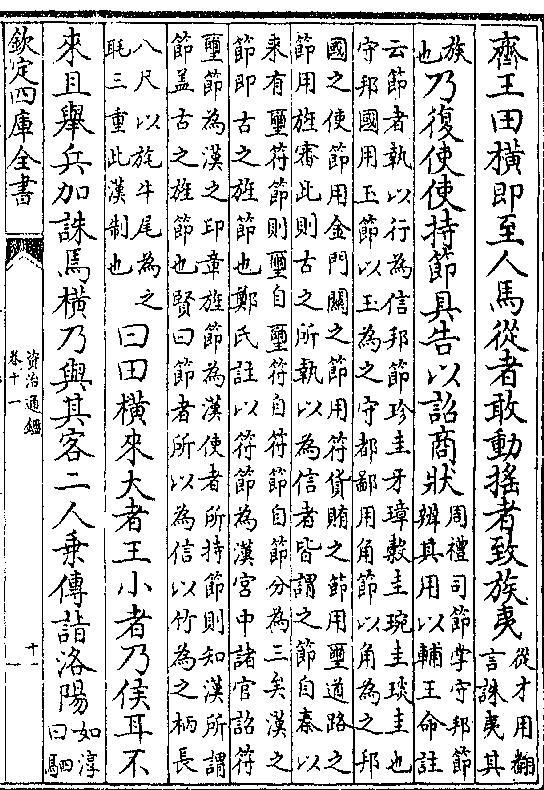 齊王田橫即至人馬從者敢動搖者致族夷從才用翻
言誅夷其
族
也乃復使使持節具告以詔商狀周禮司節掌守邦節
辨其用以輔王命註
云節者執以行為信邦節珍圭牙璋榖圭琬圭琰圭也
守邦國用玉節以玉為之守都鄙用角節以角為之邦
國之使節用金門關之節用符貨賄之節用璽道路之
節用旌審此則古之所執以為信者皆謂之節自秦以
来有璽符節則璽自璽符自符節自節分為三矣漢之
節即古之旌節也鄭氏註以符節為漢宫中諸官詔符
璽節為漢之印章旌節為漢使者所持節則知漢所謂
節盖古之旌節也賢曰節者所以為信以竹為之柄長
八尺以旄牛尾為之
毦三重此漢制也曰田橫來大者王小者乃侯耳不
來且舉兵加誅焉橫乃與其客二人乗傳詣洛陽如淳
曰駟
欽定四庫全書
資治通鑑
卷十一
十一